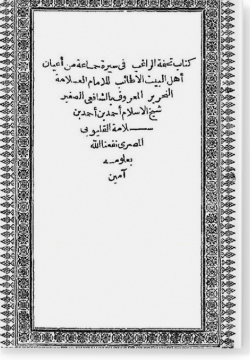 كتاب تحفة الراغب فى سيرة جماعة من أعيان
أهل البيت الاطائب للامام العلامة
النحرير المعروف بالشافعى الصغير
شيخ الاسلام أحمد بن أحمد بن
سلامة القليوبى
المصرى نفعنا الله
بعلومه
آمين